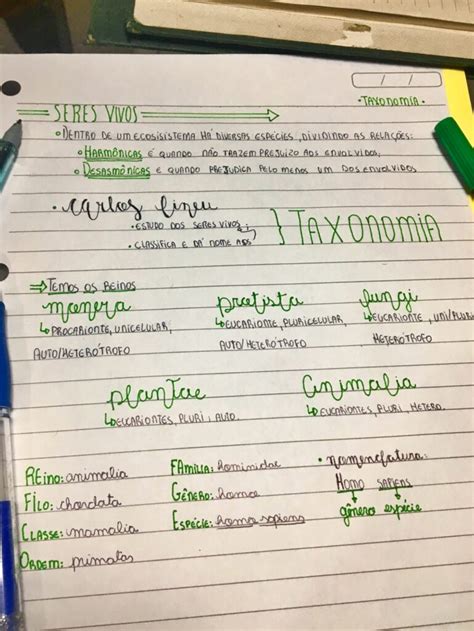 / /
• TAXONOMIA •
SERES VIVOS
• DENTRO DE UM ECOSISISTEMA HÁ DIVERSAS ESPÉCIES, DIVIDINDO AS RELAÇÕES:
• HARMÔNICAS É QUANDO NÃO TRAZEM PREJUIZO AOS ENVOLVIDOS,
• DESASMÔNICAS E QUANDO PREJUDICA PELO MENOS UM DOS ENVOLVIDOS
• carlos lineu
• ESTUDO DOS SERES VIVOS
• CLASSIFICA E DÁ NOME AOS
} TAXONOMIA
⇒ TEMOS OS REINOS
monera protista fungi
↳ PROCARIONTE, UNICELULAR, ↳ EUCARIONTE, PLURICELULAR, ↳ EUCARIONTE, UNI/PLURI
AUTO/HETERÓTROFO AUTO/HETERÓTROFO HETERÓTROFO
plantae animalia
↳ EUCARIONTES, PLURI, AUTO. ↳ EUCARIONTES, PLURI, HETERO.
REINO: animalia FAMÍLIA: hominidae • nomenclatura:
FILO: chordata GÊNERO: homo HOMO SAPIENS
CLASSE: mamalia ESPÉCIE: homo sapiens gênero espécie
ORDEM: primatas